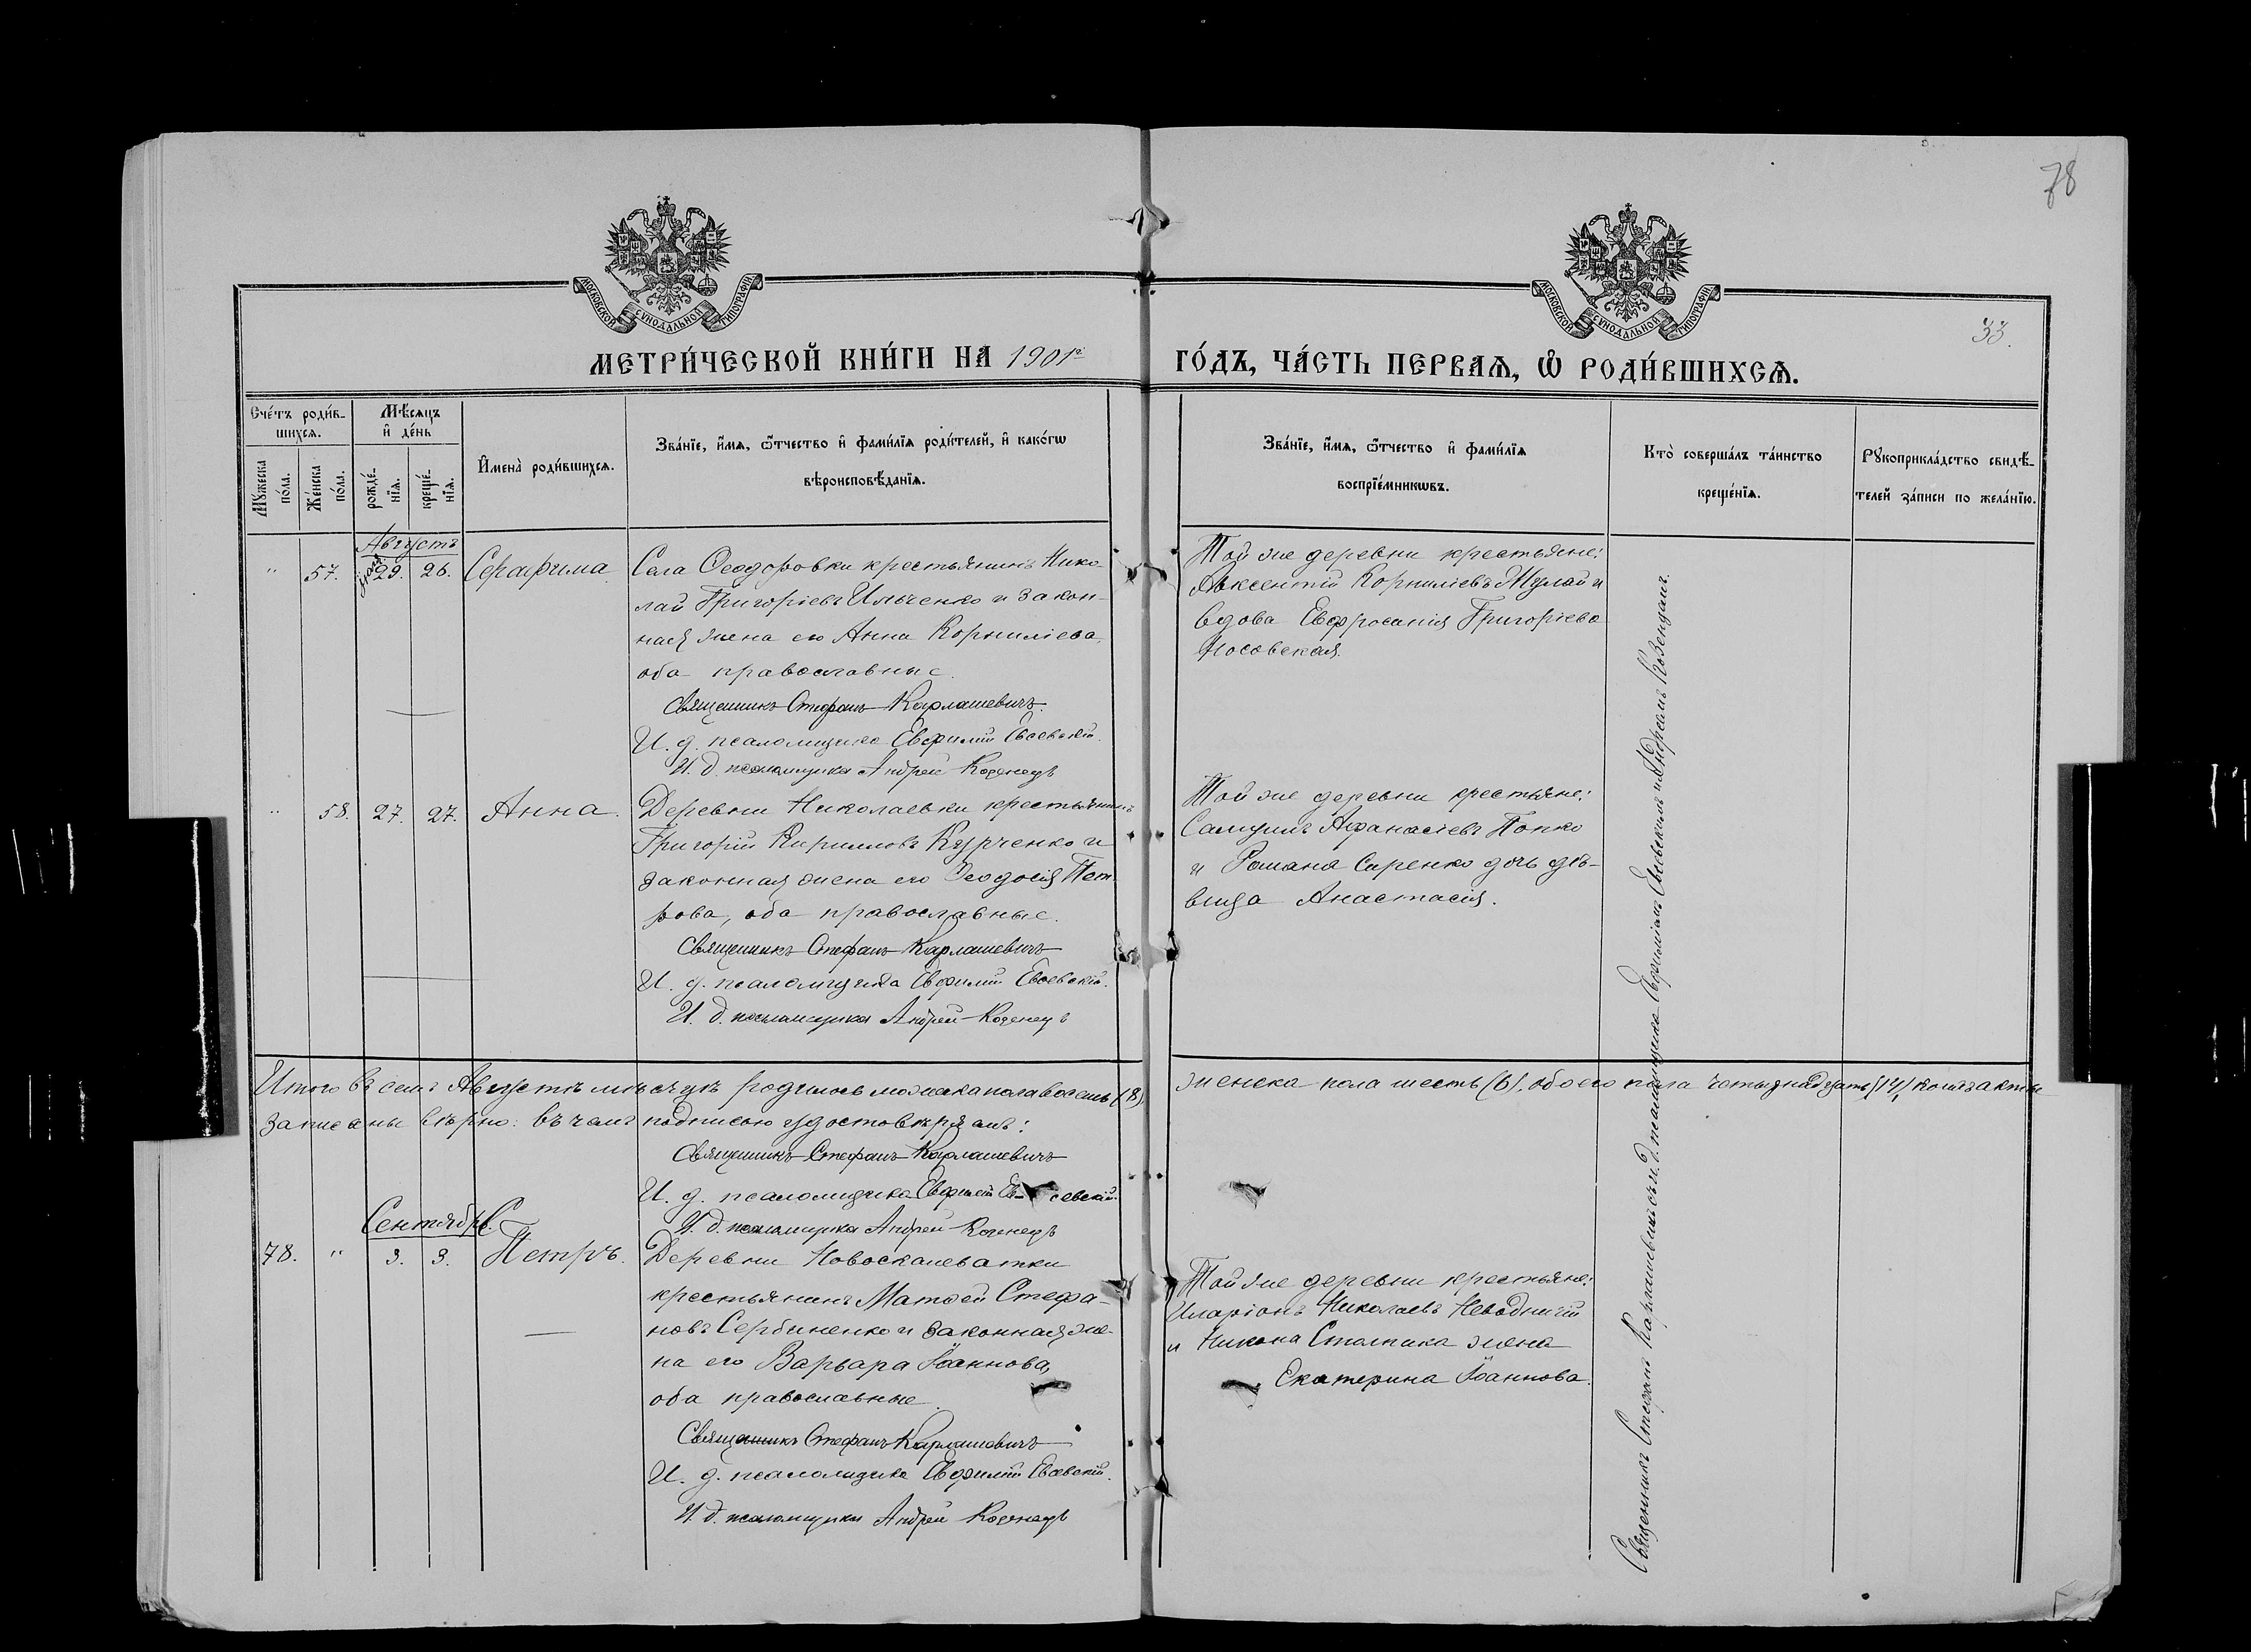 78
МОСКОВСКОЙ СѴНОДАЛЬНОЙ ТИПОГРАФІИ
МОСКОВСКОЙ СѴНОДАЛЬНОЙ ТИПОГРАФІИ
33.
МЕТРИ́ЧЕСКОЙ КНИ́ГИ НА 1901г.
ГО́ДЪ, ЧА́СТЬ ПЕРВАѦ, Ѽ РОДИ́ВШИХСѦ.
Сче́тъ роди́в-
шихсѧ.
Мѣ́сѧцъ
и҆ де́нь
Мꙋ́жеска
по́ла.
Же́нска
по́ла.
рожде́-
нїѧ.
креще́-
нїѧ.
И҆мена̀ роди́вшихсѧ.
Зва́нїе, и҆́мѧ, ѻ҆́тчество и҆ фами́лїѧ роди́телей, и҆ како́гѡ
вѣроисповѣ́данїѧ.
Зва́нїе, и҆́мѧ, ѻ҆́тчество и҆ фами́лїѧ
воспрїе́мникѡвъ.
Кто̀ соверша́лъ та́инство
креще́нїѧ.
Рꙋкоприкла́дство свидѣ́-
телей за́писи по жела́нїю.
Августъ
" 57. 29. 26. Серафима
Села Ѳеодоровки крестьянинъ Нико
лай Григоріевъ Ильченко и закон-
ная жена его Анна Корниліева,
оба православные.
Священникъ Стефанъ Карлашевичъ.
И. д. псаломщика Евфимій Евсевскій.
И. д. псаломщика Андрей Коденецъ
Той же деревни крестьяне:
Авксентій Корниліевъ Мулай и
вдова Евфросинія Григоріева
Носовская.
" 58. 27. 27. Анна.
Деревни Николаевки крестьянинъ
Григорій Кирилловъ Курченко и
законная жена его Ѳеодосія Пет-
рова, оба православные.
Священникъ Стефанъ Карлашевичъ
И. д. псаломщика Евфимій Евсевскій.
И. д. псаломщика Андрей Коденецъ
Той же деревни крестьяне:
Самуилъ Аѳанасіевъ Попко
и Романа Саренко дочь дѣ-
вица Анастасія.
Итого въ семъ Августѣ мѣсяцѣ родилось мужеска пола восемь (8), женска пола шесть (6), обоего пола четырнадцать (14), коихъ акты
записаны вѣрно: въ чемъ подписью удостовѣряемъ:
Священникъ Стефанъ Карлашевичъ
И. д. псаломщика Евфимій Евсевскій.
И. д. псаломщика Андрей Коденецъ
Сентябрь.
78. " 3. 3. Петръ.
Деревни Новоскалеватки
крестьянинъ Матѳей Стефа-
новъ Сербиненко и законная же-
на его Варвара Іоаннова,
оба православные.
Священникъ Стефанъ Карлашевичъ
И. д. псаломщика Евфимій Евсевскій.
И. д. псаломщика Андрей Коденецъ
Той же деревни крестьяне:
Иларіонъ Николаевъ Неводничій
и Никона Столпака жена
Екатерина Іоаннова.
Священникъ Стефанъ Карлашевичъ съ и. д. псаломщика Евфиміемъ Евсевскимъ и Андреемъ